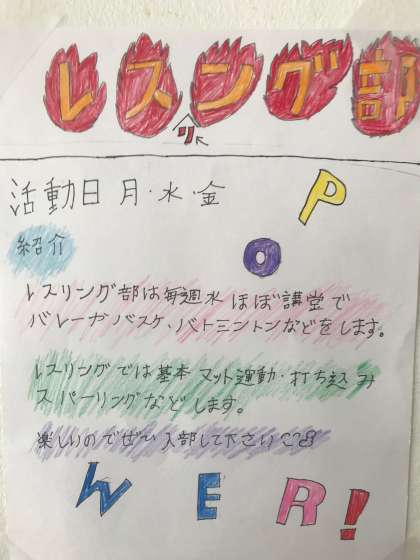 レスング部
リ
活動日 月・水・金
P
O
紹介
レスリング部は毎週水ほぼ講堂で
バレーかバスケ、バトミントンなどをします。
レスリングでは基本マット運動・打ち込み
スパーリングなどします。
楽しいのでぜひ入部して下さい
WER!